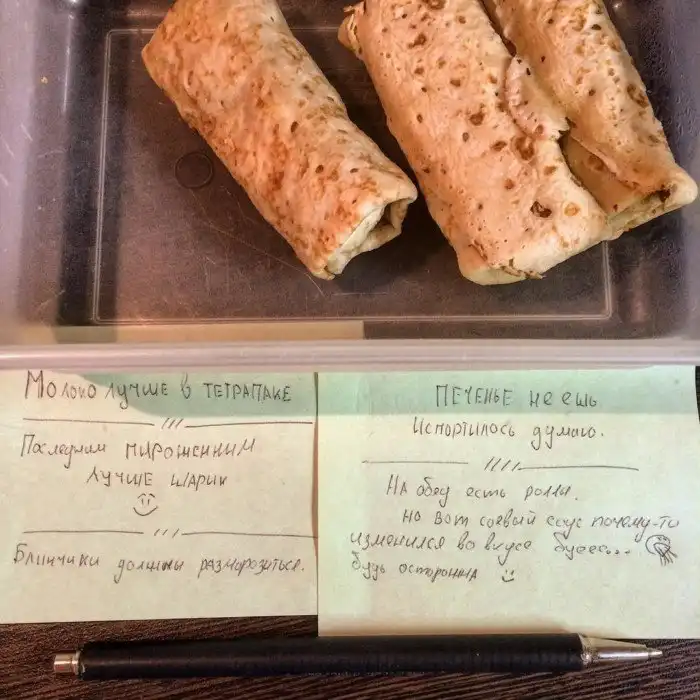 Молоко лучше в ТЕТРАПАКЕ
Последним мирошенным
лучше шарик
Блинчики должны разморозиться.
ПЕЧЕНЬЕ не ешь
Испортилось думаю.
На обед есть роллы.
Но вот соевый соус почему-то
изменился во вкусе буэее...
будь осторожна